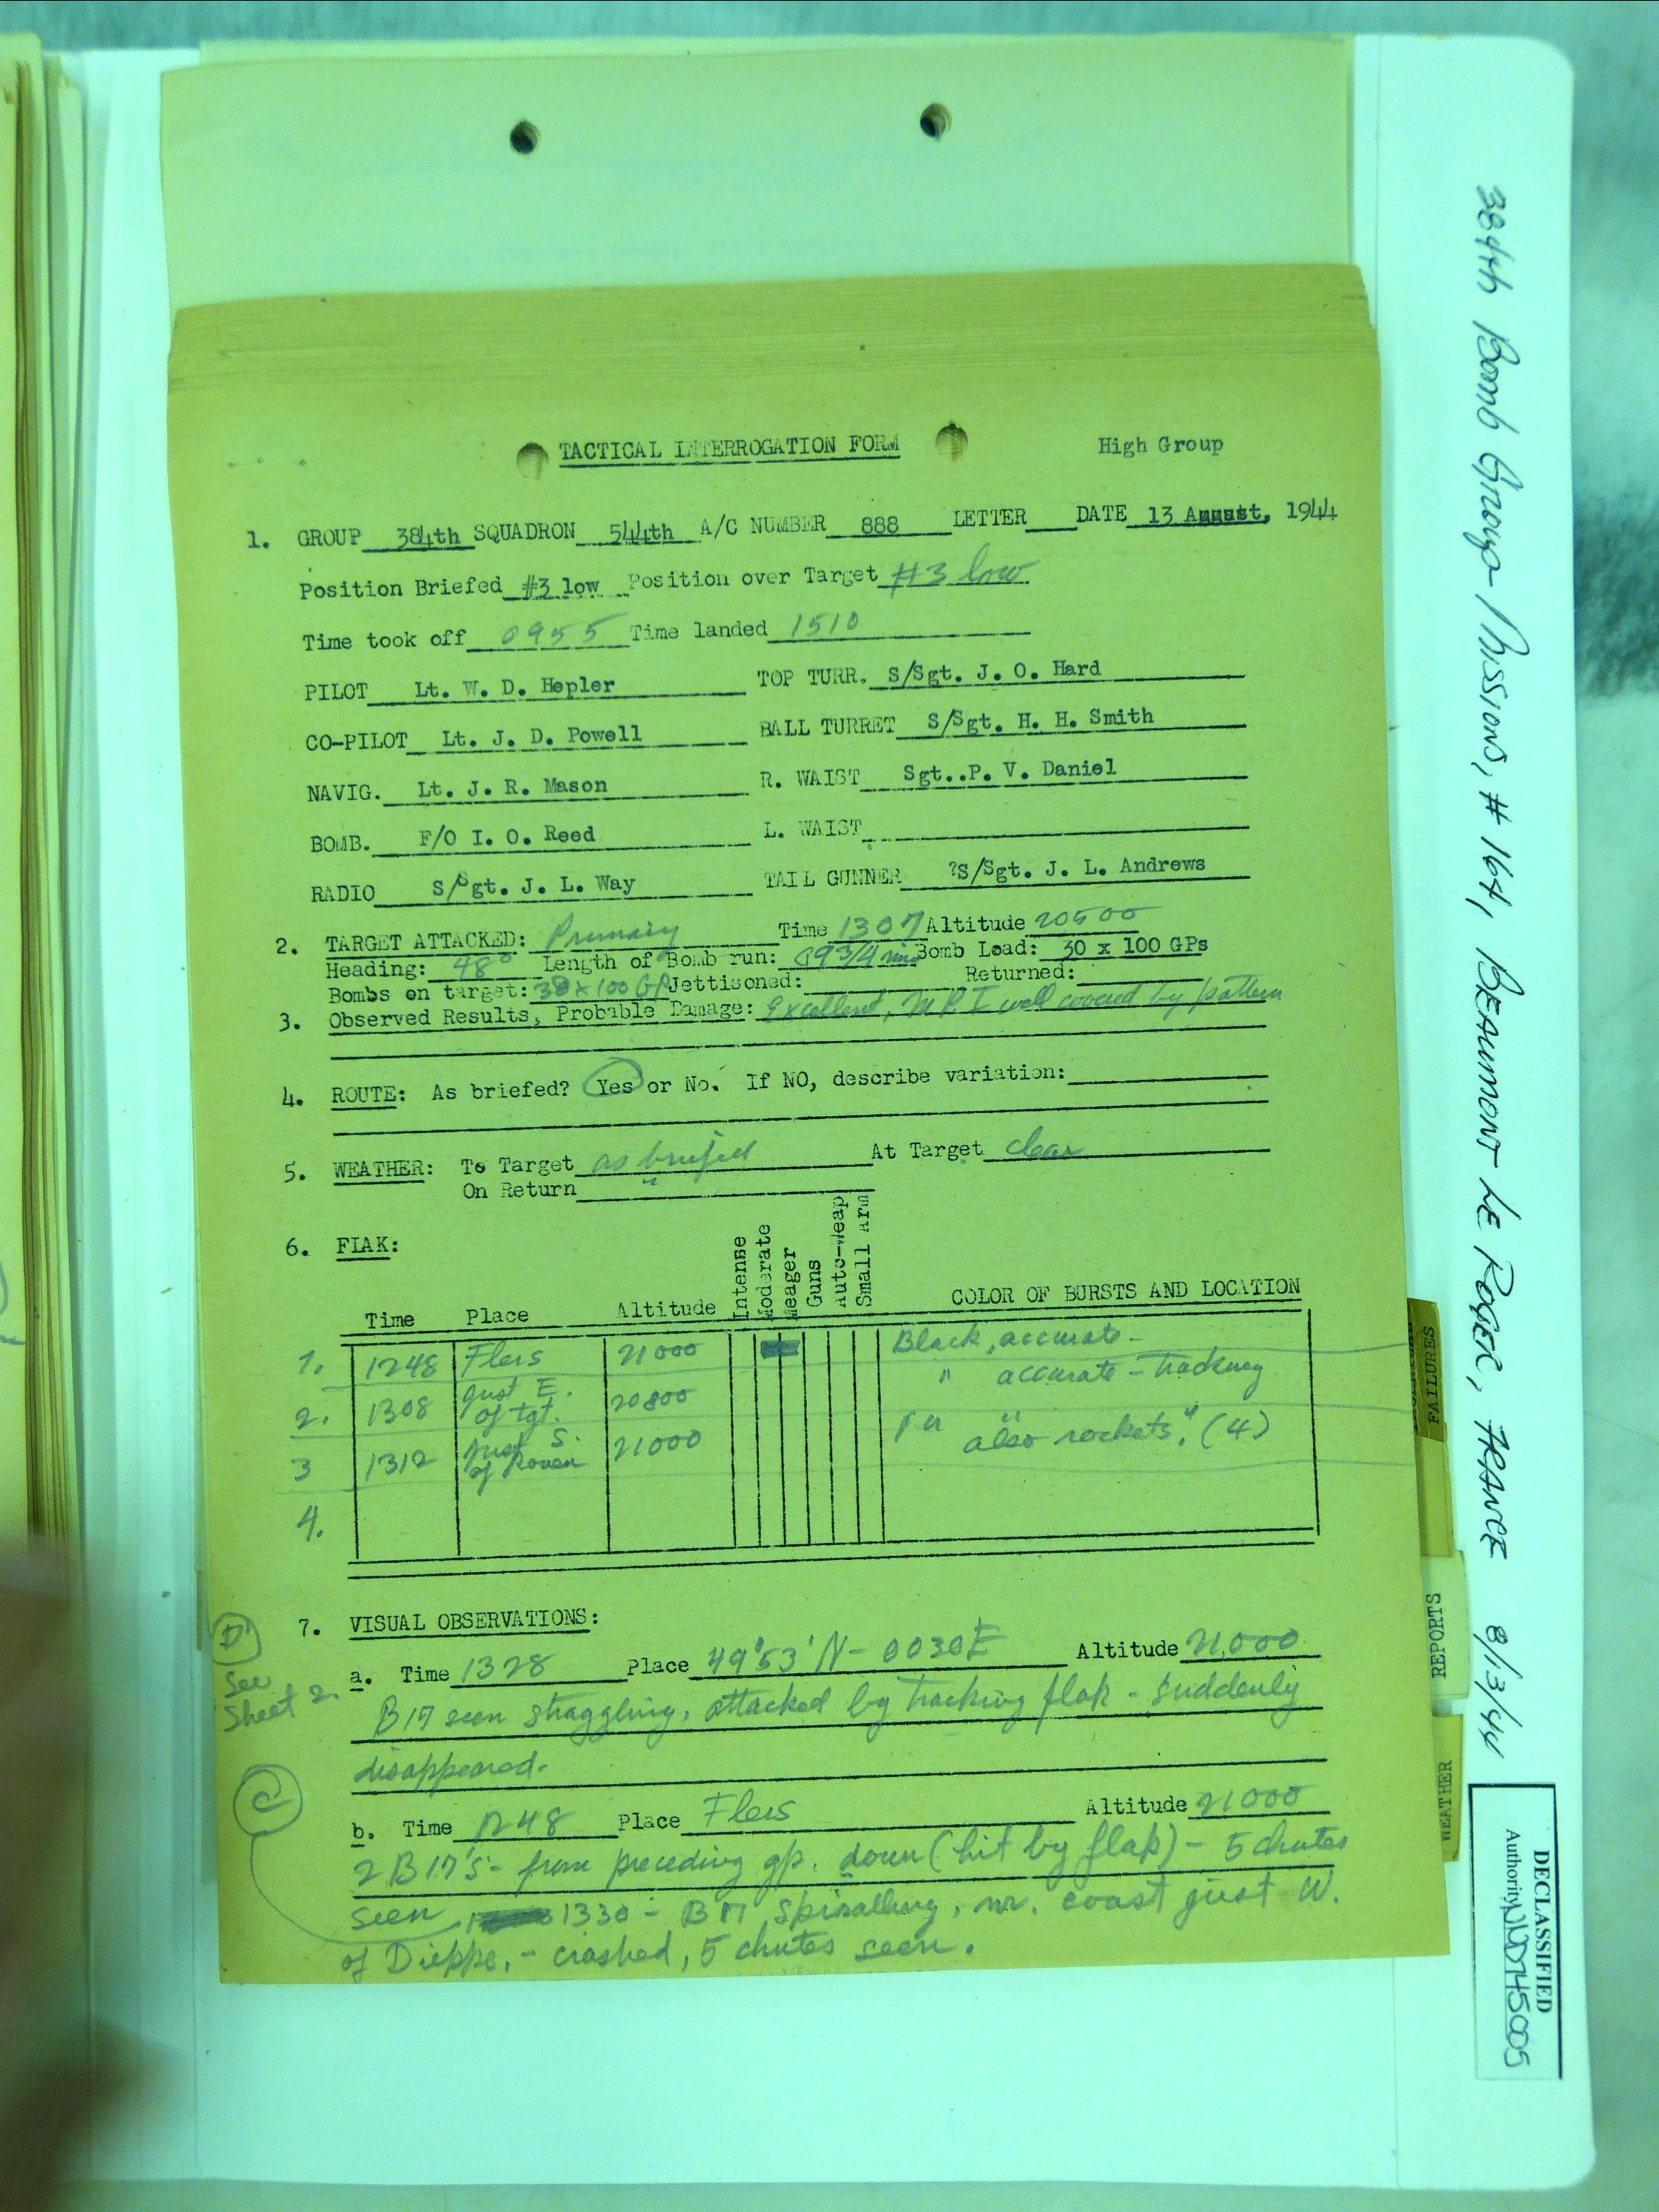 TACTICAL INTERROGATION FORM
High Group
1. GROUP 384th SQUADRON 544th A/C NUMBER 888 LETTER DATE 13 August, 1944
Position Briefed #3 low Position over Target #3 low
Time took off 0955 Time landed 1510
PILOT Lt. W. D. Hepler TOP TURR. S/Sgt. J. O. Hard
CO-PILOT Lt. J. D. Powell BALL TURRET S/Sgt. H. H. Smith
NAVIG. Lt. J. R. Mason R. WAIST Sgt..P. V. Daniel
BOMB. F/O I. O. Reed L. WAIST
RADIO S/Sgt. J. L. Way TAIL GUNNER ?S/Sgt. J. L. Andrews
2. TARGET ATTACKED: Primary Time 1307 Altitude 20500
Heading: 48° Length of Bomb run: 9 3/4 min Bomb Load: 30 x 100 GPs
Bombs on target: 38 x 100 GP Jettisoned: Returned:
3. Observed Results, Probable Damage: Excellent, MPI well covered by pattern
4. ROUTE: As briefed? Yes or No. If NO, describe variation:
5. WEATHER: To Target as briefed At Target clear
On Return "
6. FLAK:
Time Place Altitude Intense Moderate Meager Guns Auto-Weap Small Arm COLOR OF BURSTS AND LOCATION
1. 1248 Flers 21000 Black, accurate -
2. 1308 Just E. of tgt. 20800 " accurate - tracking
3 1312 Just S. of Rouen 21000 " " also rockets. (4)
4.
7. VISUAL OBSERVATIONS:
D
See
Sheet 2.
a. Time 1328 Place 49°53'N - 0030E Altitude 21,000
B17 seen straggling, attacked by tracking flak - suddenly
disappeared.
C
b. Time 1248 Place Flers Altitude 21000
2 B17's - from preceding gp. down (hit by flak) - 5 chutes
seen 1330 - B17 spiralling, nr. coast just W.
of Dieppe, - crashed, 5 chutes seen.
384th Bomb Group Missions, # 164, BEAUMONT LE ROGER, FRANCE 8/13/44
FAILURES
REPORTS
WEATHER
DECLASSIFIED
Authority NND745005